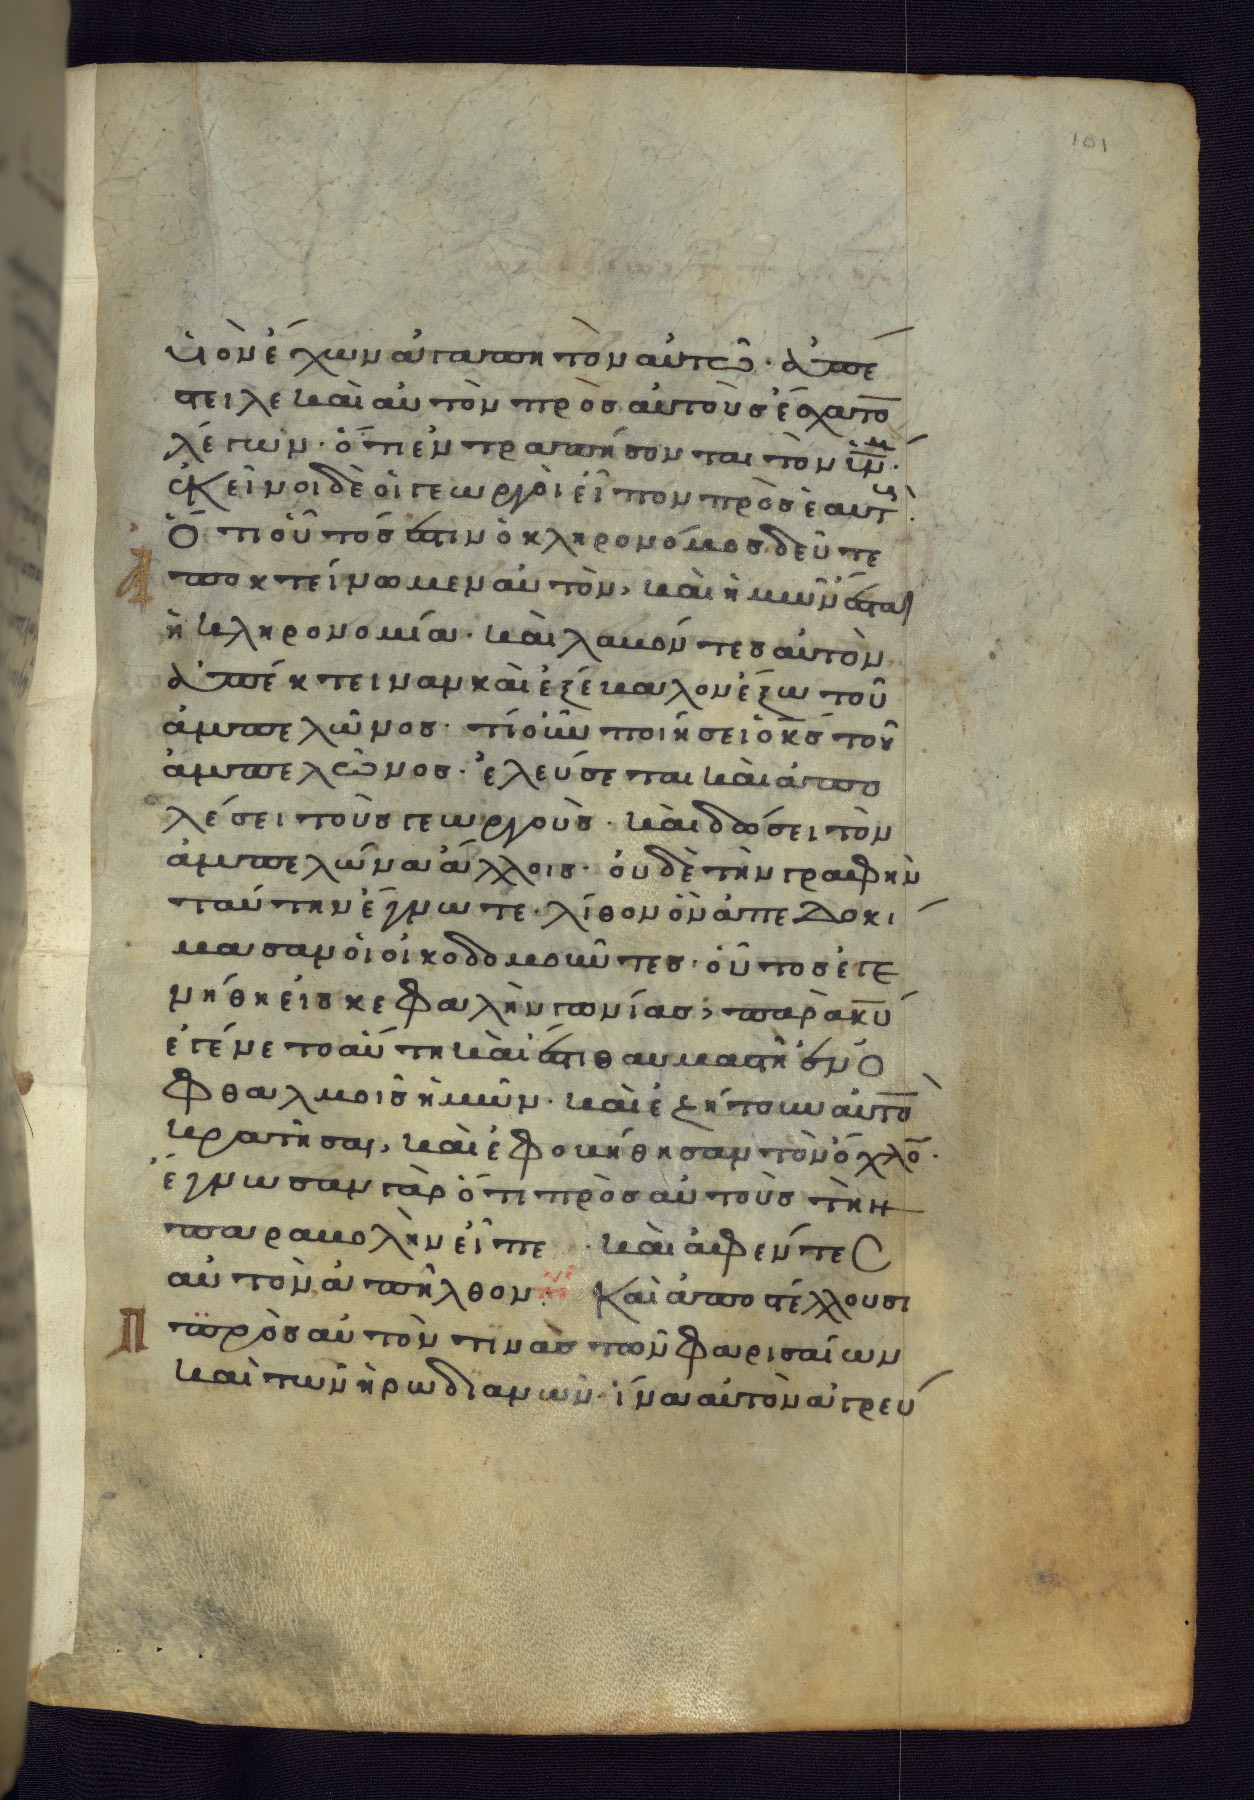 101
υἱὸν ἔχων ἀγαπητὸν αὐτοῦ· ἀπέ
στειλε καὶ αὐτὸν πρὸς αὐτοὺς ἔσχατο̅
λέγων· ὅτι ἐντραπήσονται τὸν υι̅ν μ·
ἐκεῖνοι δὲ οἱ γεωργοὶ εἶπον πρὸς ἑαυτ·
Ὅτι οὗτός ἐστιν ὁ κληρονόμος δεῦτε
ἀποκτείνωμεν αὐτὸν, καὶ ἡμῶν ἔσται
ἡ κληρονομία· καὶ λαβόντες αὐτὸν
ἀπέκτειναν καὶ ἐξέβαλον ἔξω τοῦ
ἀμπελῶνος· τί οὖν ποιήσει ὁ κς̅ τοῦ
ἀμπελῶνος· ἐλεύσεται καὶ ἀπο
λέσει τοὺς γεωργοὺς· καὶ δώσει τὸν
ἀμπελῶνα ἄλλοις· οὐδὲ τὴν γραφὴν
ταύτην ἔγνωτε· λίθον ὃν ἀπεδοκί
μασαν οἱ οἰκοδομοῦντες· οὗτος ἐγε
νήθη εἰς κεφαλὴν γωνίας, παρὰ κ̅υ
ἐγένετο αὕτη καὶ ἔστι θαυμαστὴ ἐν ὀ
φθαλμοῖς ἡμῶν· καὶ ἐζήτουν αὐτο̅
κρατῆσαι, καὶ ἐφοβήθησαν τὸν ὄχλο̅·
ἔγνωσαν γὰρ ὅτι πρὸς αὐτοὺς τὴν
παραβολὴν εἶπε · καὶ ἀφέντες
αὐτὸν ἀπῆλθον· Καὶ ἀποστέλλουσι
πρὸς αὐτὸν τινὰς τῶν φαρισαίων
καὶ τῶν ἡρωδιανῶν· ἵνα αὐτὸν ἀγρεύ